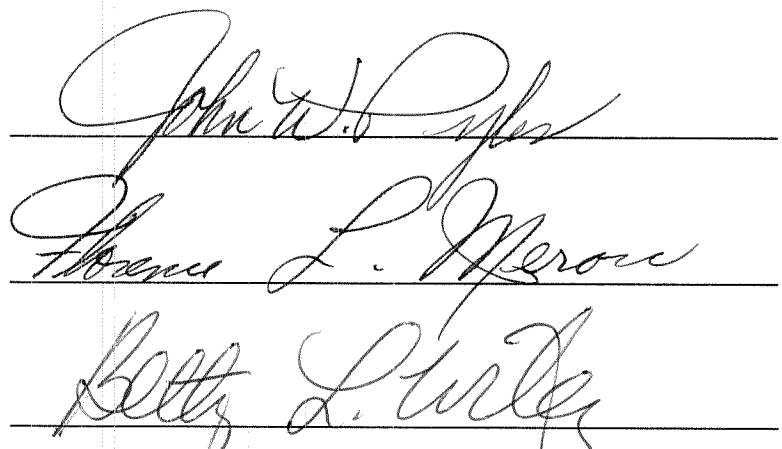 John W. Pyles
Florence L. Merow
Betty L. Wiley